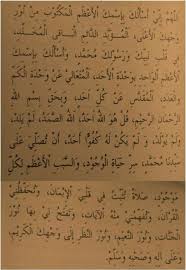 اللهم إني أسألك بإسمك الأعظم المكتوب من نور
وجهك الأعلى المؤبد الدائم الباقي المخلد،
في قلب نبيك ورسولك محمد، وأسألك بإسمك
الأعظم الواحد بوحدة الأحد، المتعالي عن وحدة الكم
والعدد، المقدس عن كل أحد، وبحق بسم الله
الرحمن الرحيم، قل هو الله أحد، الله الصمد، لم يلد،
ولم يولد، ولم يكن له كفوا أحد، أن تصلي على
سيدنا محمد، سر حياة الوجود، والسبب الأعظم لكل
موجود، صلاة تثبت في قلبي الإيمان، وتحفظني
القرآن، وتفهمني منه الآيات، وتفتح لي بها نور
الجنات، ونور النعيم، ونور النظر إلى وجهك الكريم،
وعلى آله وصحبه وسلم.